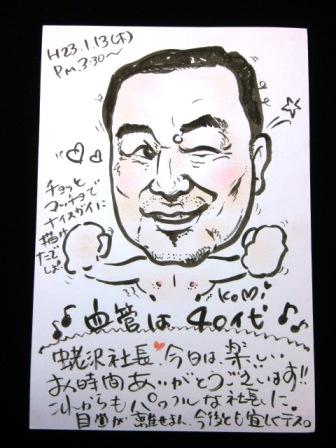 H23.1.13(木)
P.M.3:30〜
チョッと
マッチョで
ナイスガイに
描け
たで
しょ
KOMI
血管は40代
蛯沢社長、今日は、楽しい
お時間ありがとうございます!!
これからもパワフルな社長に
目が離せません、今後とも宜しくデス。